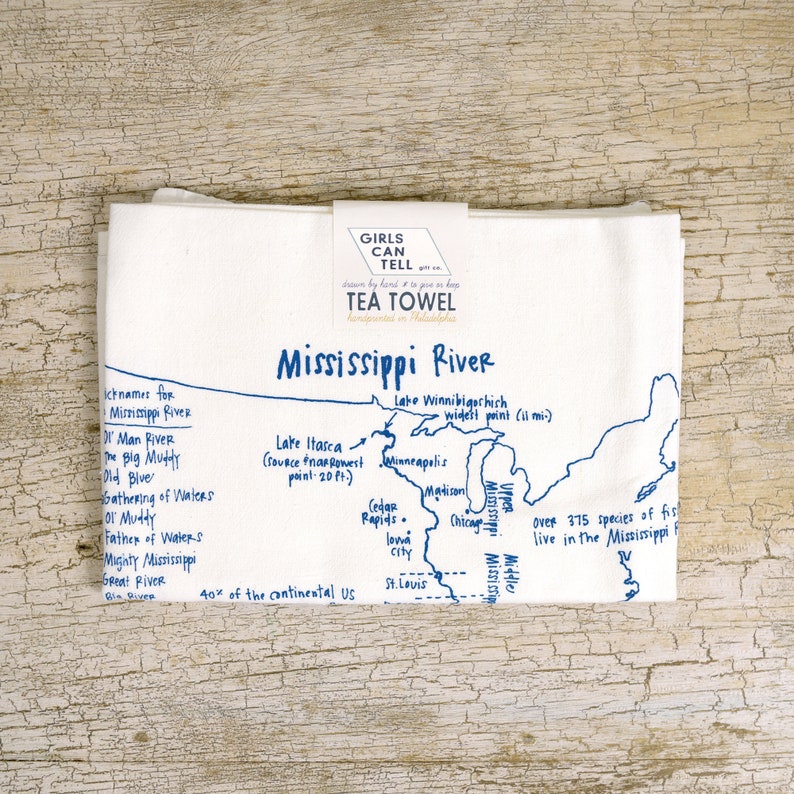 GIRLS
CAN
TELL gift co.
drawn by hand * to give or keep
TEA TOWEL
handprinted in Philadelphia
Mississippi River
Lake Winnibigoshish
widest point (11 mi.)
Lake Itasca
(source & narrowest
point- 20 ft.)
Minneapolis
Madison
Cedar
Rapids
Chicago
Iowa
City
St. Louis
Upper
Mississippi
Middle
for
Mississippi River
Ol' Man River
The Big Muddy
Old Blue
Gathering of Waters
Ol' Muddy
Father of Waters
Mighty Mississippi
Great River
Big River
40% of the continental US
over 375 species of
live in the Mississippi